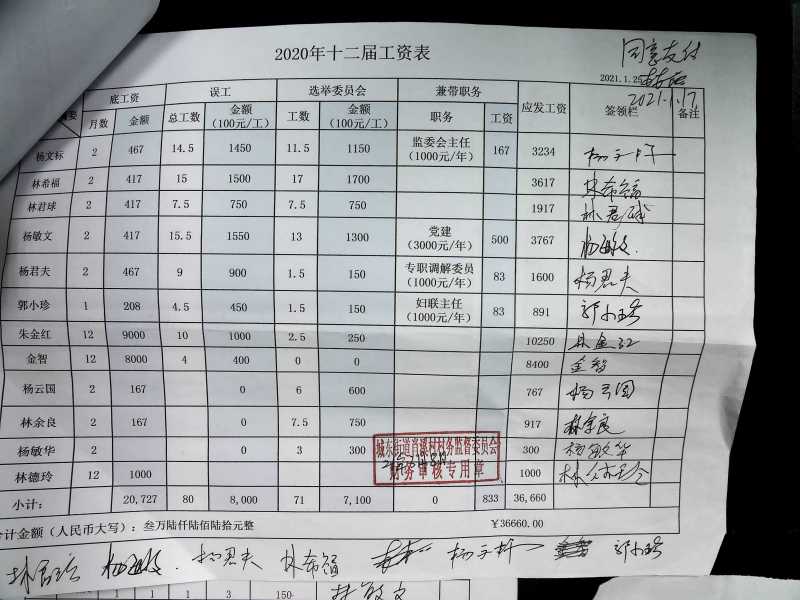 2020年十二届工资表
同意支付
2021.1.25
2021.1.17
摘要 底工资 误工 选举委员会 兼带职务 应发工资 签领栏 备注
月数 金额 总工数 金额（100元/工） 工数 金额（100元/工） 职务 工资
杨文标 2 467 14.5 1450 11.5 1150 监委会主任（1000元/年） 167 3234
林希福 2 417 15 1500 17 1700 3617 林希福
林君球 2 417 7.5 750 7.5 750 1917 林君球
杨敏文 2 417 15.5 1550 13 1300 党建（3000元/年） 500 3767 杨敏文
杨君夫 2 467 9 900 1.5 150 专职调解委员（1000元/年） 83 1600 杨君夫
郭小珍 1 208 4.5 450 1.5 150 妇联主任（1000元/年） 83 891 郭小珍
朱金红 12 9000 10 1000 2.5 250 10250 朱金红
金智 12 8000 4 400 0 0 8400 金智
杨云国 2 167 0 6 600 767 杨云国
林余良 2 167 0 7.5 750 917 林余良
杨敏华 2 0 3 300 300 杨敏华
林德玲 12 1000 1000
城东街道肖溪村村务监督委员会
财务审核专用章
小计： 20,727 80 8,000 71 7,100 0 833 36,660
合计金额（人民币大写）：叁万陆仟陆佰陆拾元整 ¥36660.00
杨敏文 杨君夫 林希福 郭小珍
1 1 1 3 150 林敏文